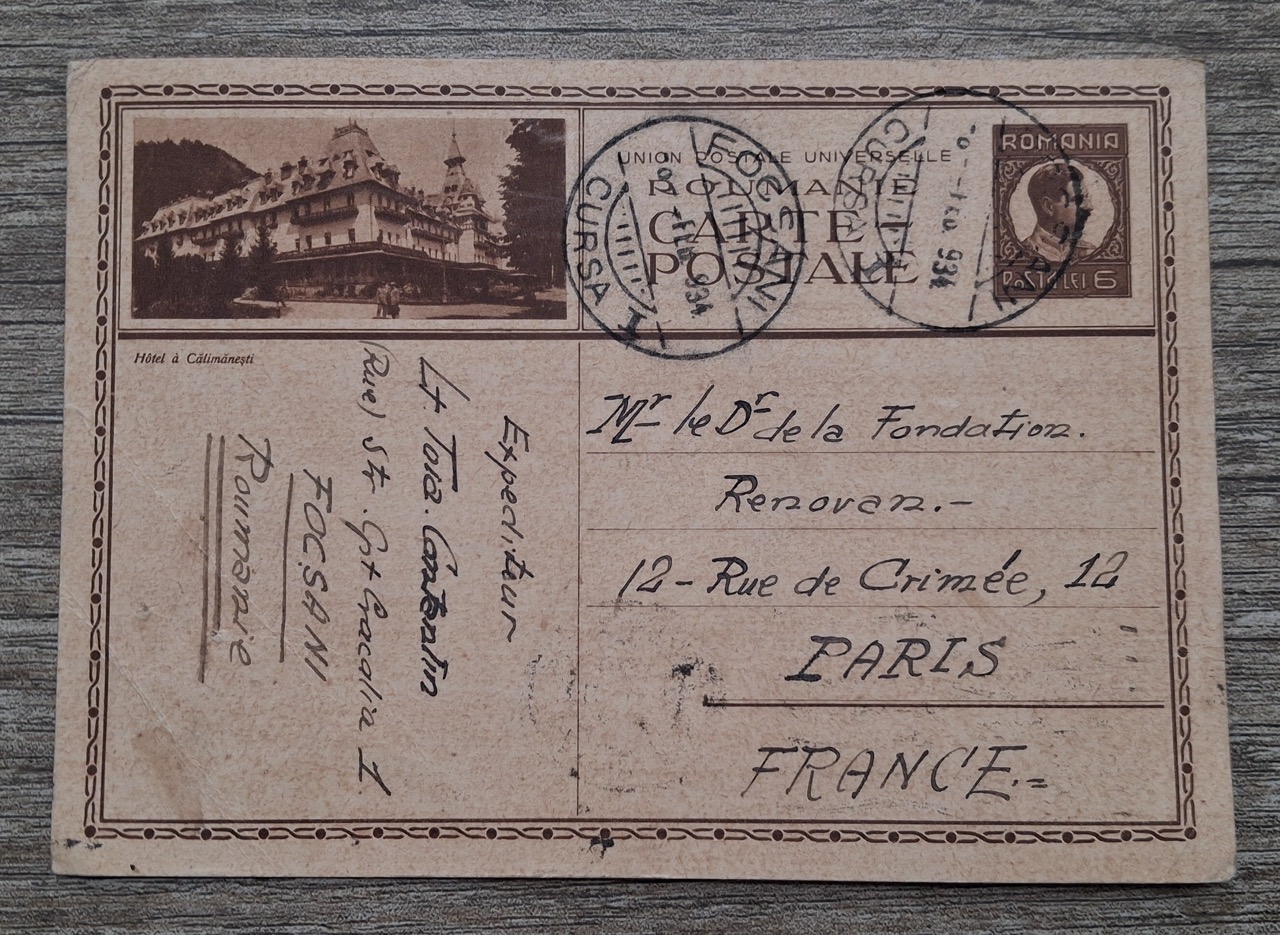 UNION POSTALE UNIVERSELLE
ROUMANIE
CARTE
POSTALE
ROMANIA
POSTA LEI 6
FOCȘANI
CURSA 1
934
CURSA
934
Hôtel à Călimănești
Mr le Dr de la Fondation.
Renovan.-
12-Rue de Crimée, 12
PARIS
FRANCE.=
Expediteur
Lt. Tova. Constantin
(Rue) Str. Grt 1
FOCSANI
Roumanie